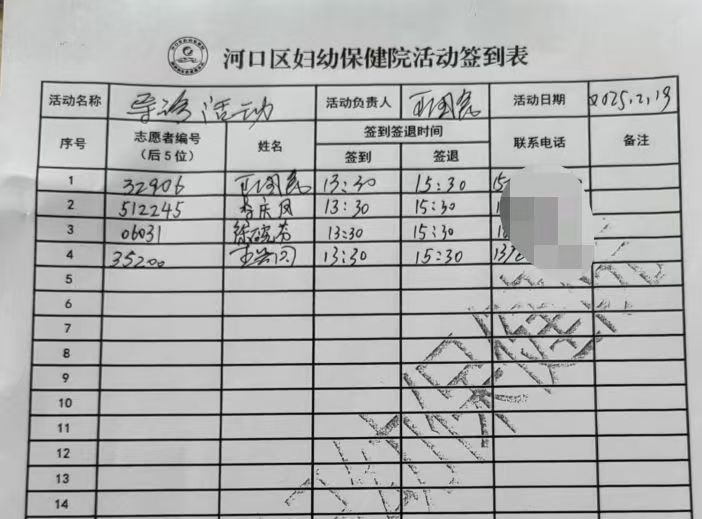 河口区妇幼保健院活动签到表
活动名称 导诊活动 活动负责人 活动日期 2025.2.19
序号 志愿者编号（后5位） 姓名 签到签退时间 联系电话 备注
签到 签退
1 32906 13:30 15:30 15
2 512245 李庆凤 13:30 15:30 1
3 06031 13:30 15:30 1
4 35200 13:30 15:30 137
5
6
7
8
9
10
11
12
13
14
妇幼保健院